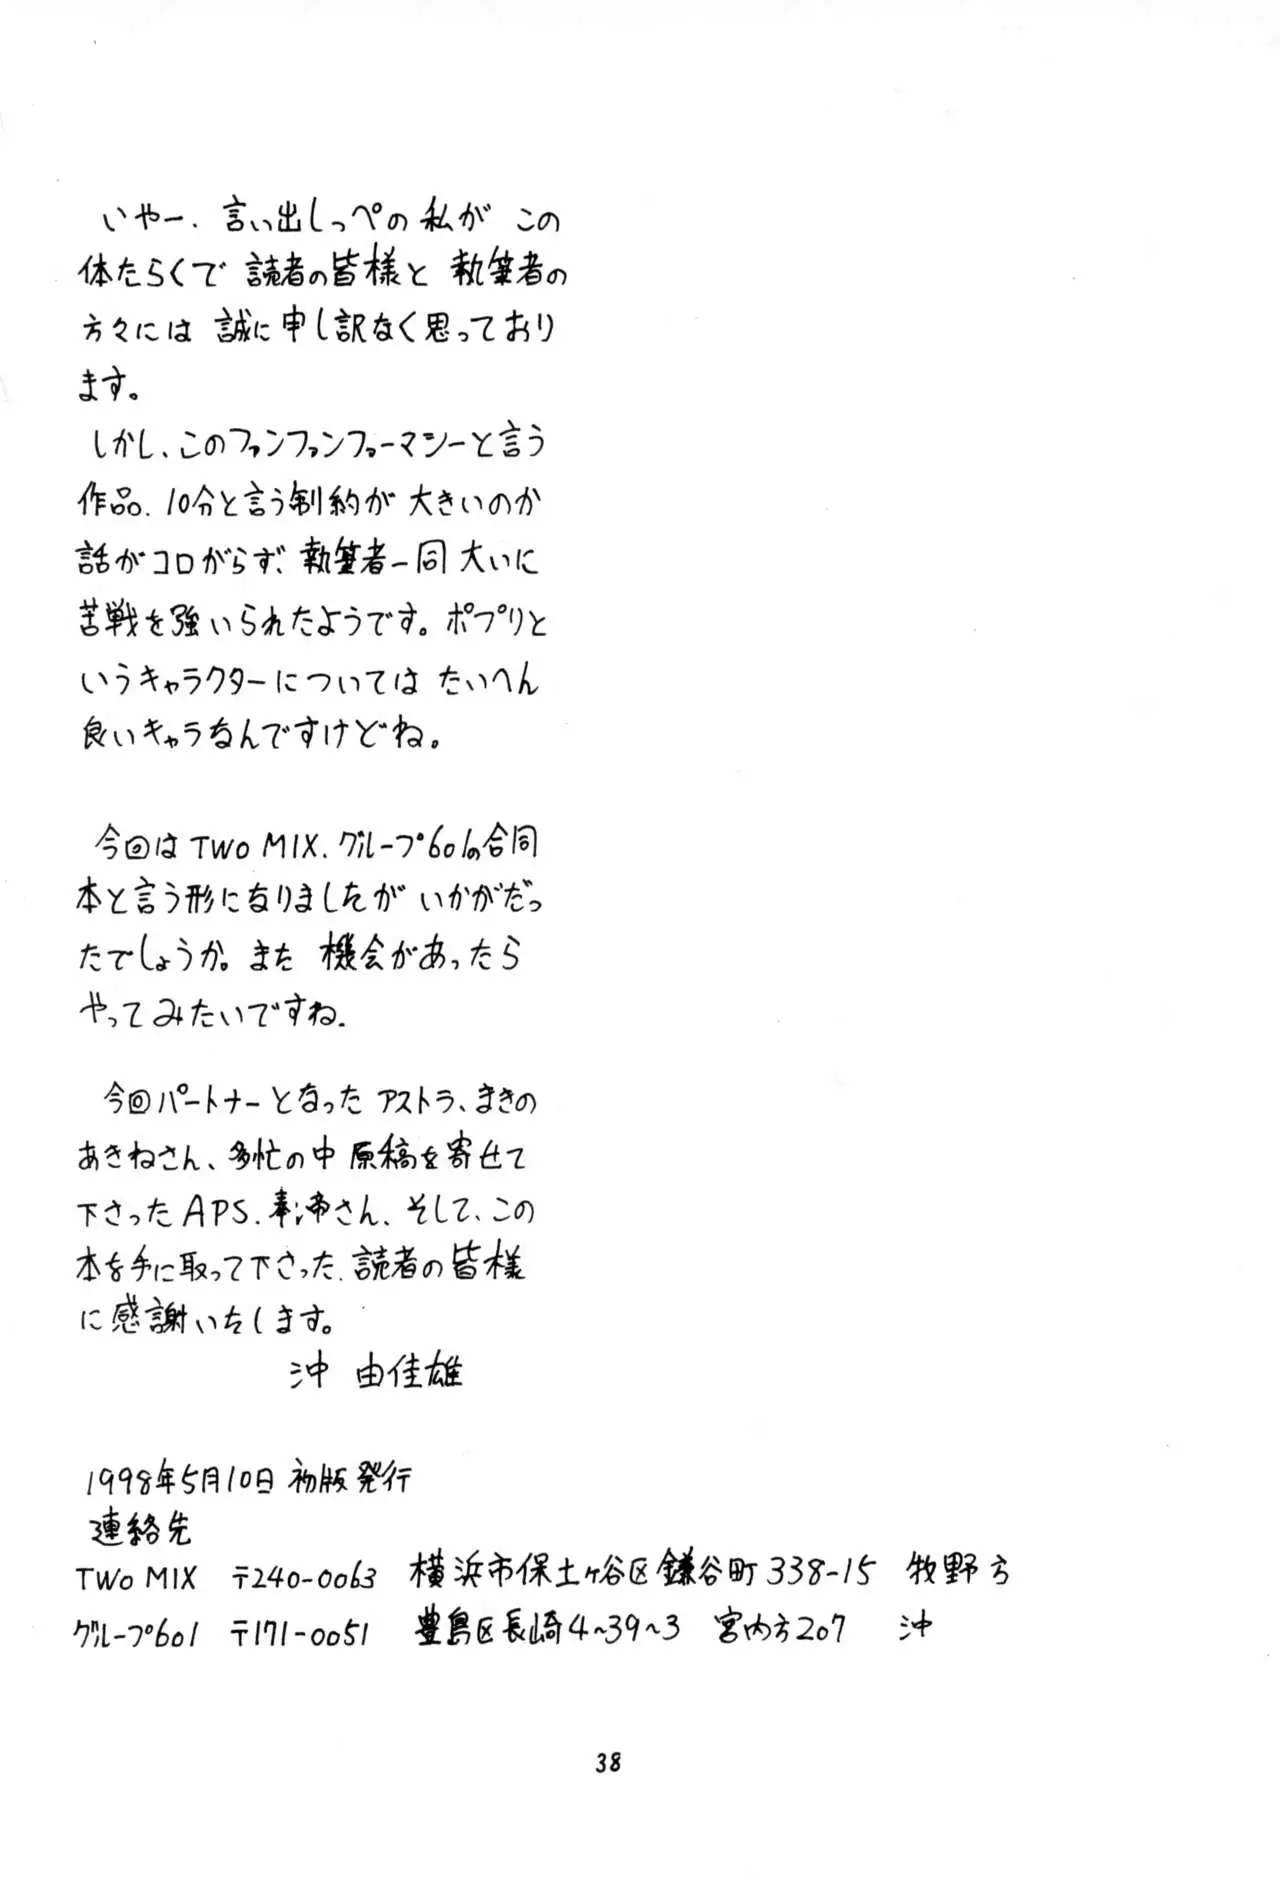 いやー、言い出しっぺの私がこの
体たらくで読者の皆様と執筆者の
方々には誠に申し訳なく思っており
ます。
しかし、このファンファンファーマシーと言う
作品、10分と言う制約が大きいのか
話がコロがらず、執筆者一同大いに
苦戦を強いられたようです。ポプリと
いうキャラクターについてはたいへん
良いキャラなんですけどね。
今回はTWO MIX、グループ601の合同
本と言う形になりましたがいかがだっ
たでしょうか。また機会があったら
やってみたいですね。
今回パートナーとなったアストラ、まきの
あきねさん、多忙の中原稿を寄せて
下さったAPS、さん、そして、この
本を手に取って下さった、読者の皆様
に感謝いたします。
沖 由佳雄
1998年5月10日 初版発行
連絡先
TWO MIX 〒240-0063 横浜市保土ヶ谷区鎌谷町338-15 牧野方
グループ601 〒171-0051 豊島区長崎4~39~3 宮内方207 沖
38